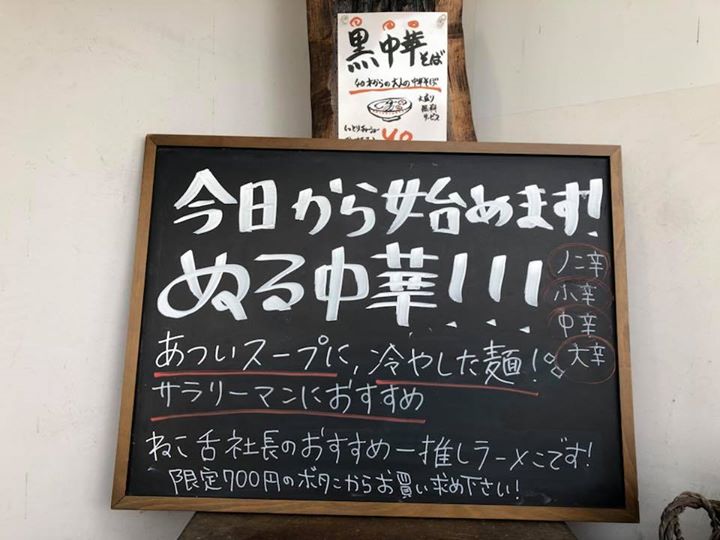 黒中華そば
40才からの大人の中華そば
大盛り
無料
サービス
今日から始めます!
ぬる中華!!!
ノン辛
小辛
中辛
大辛
あついスープに、冷やした麺!
サラリーマンにおすすめ
ねこ舌社長のおすすめ一推しラーメンです!
限定700円のボタンからお買い求め下さい!